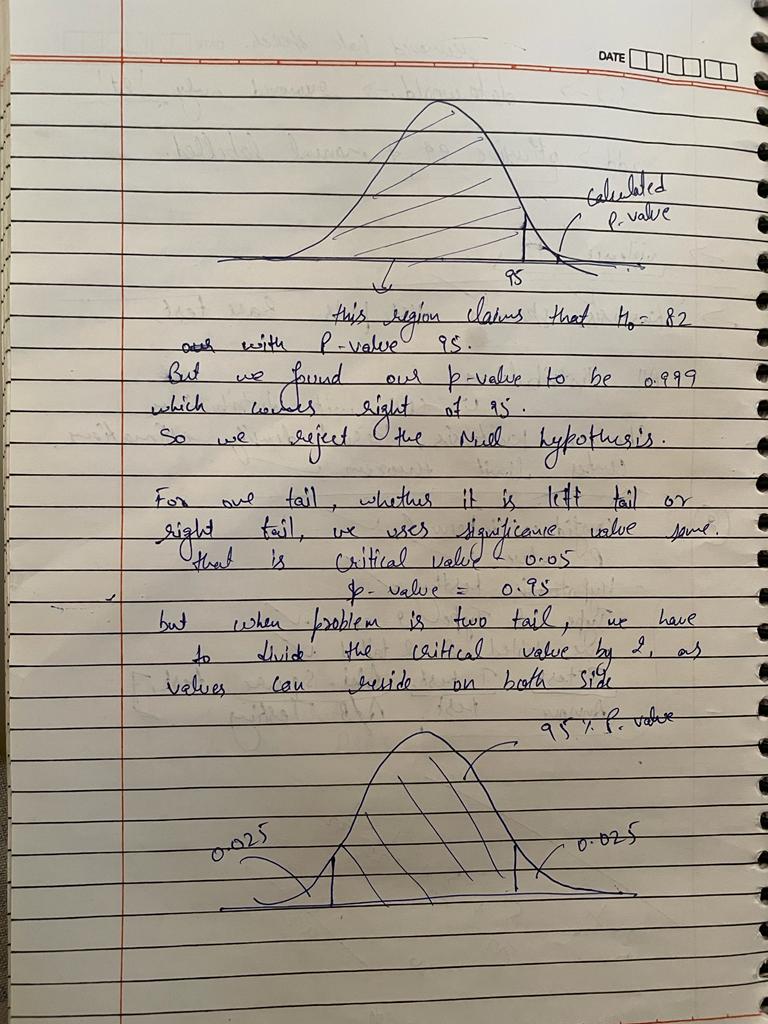 DATE
calculated
P-value
95
this region claims that H₀ = 82
with P-value 95.
But we found our p-value to be 0.999
which comes right of 95.
So we reject the Null hypothesis.
For one tail, whether it is left tail or
right tail, we uses significance value same.
that is critical value = 0.05
p-value = 0.95
but when problem is two tail, we have
to divide the critical value by 2, as
values can reside on both side
95 % P-value
0.025
0.025